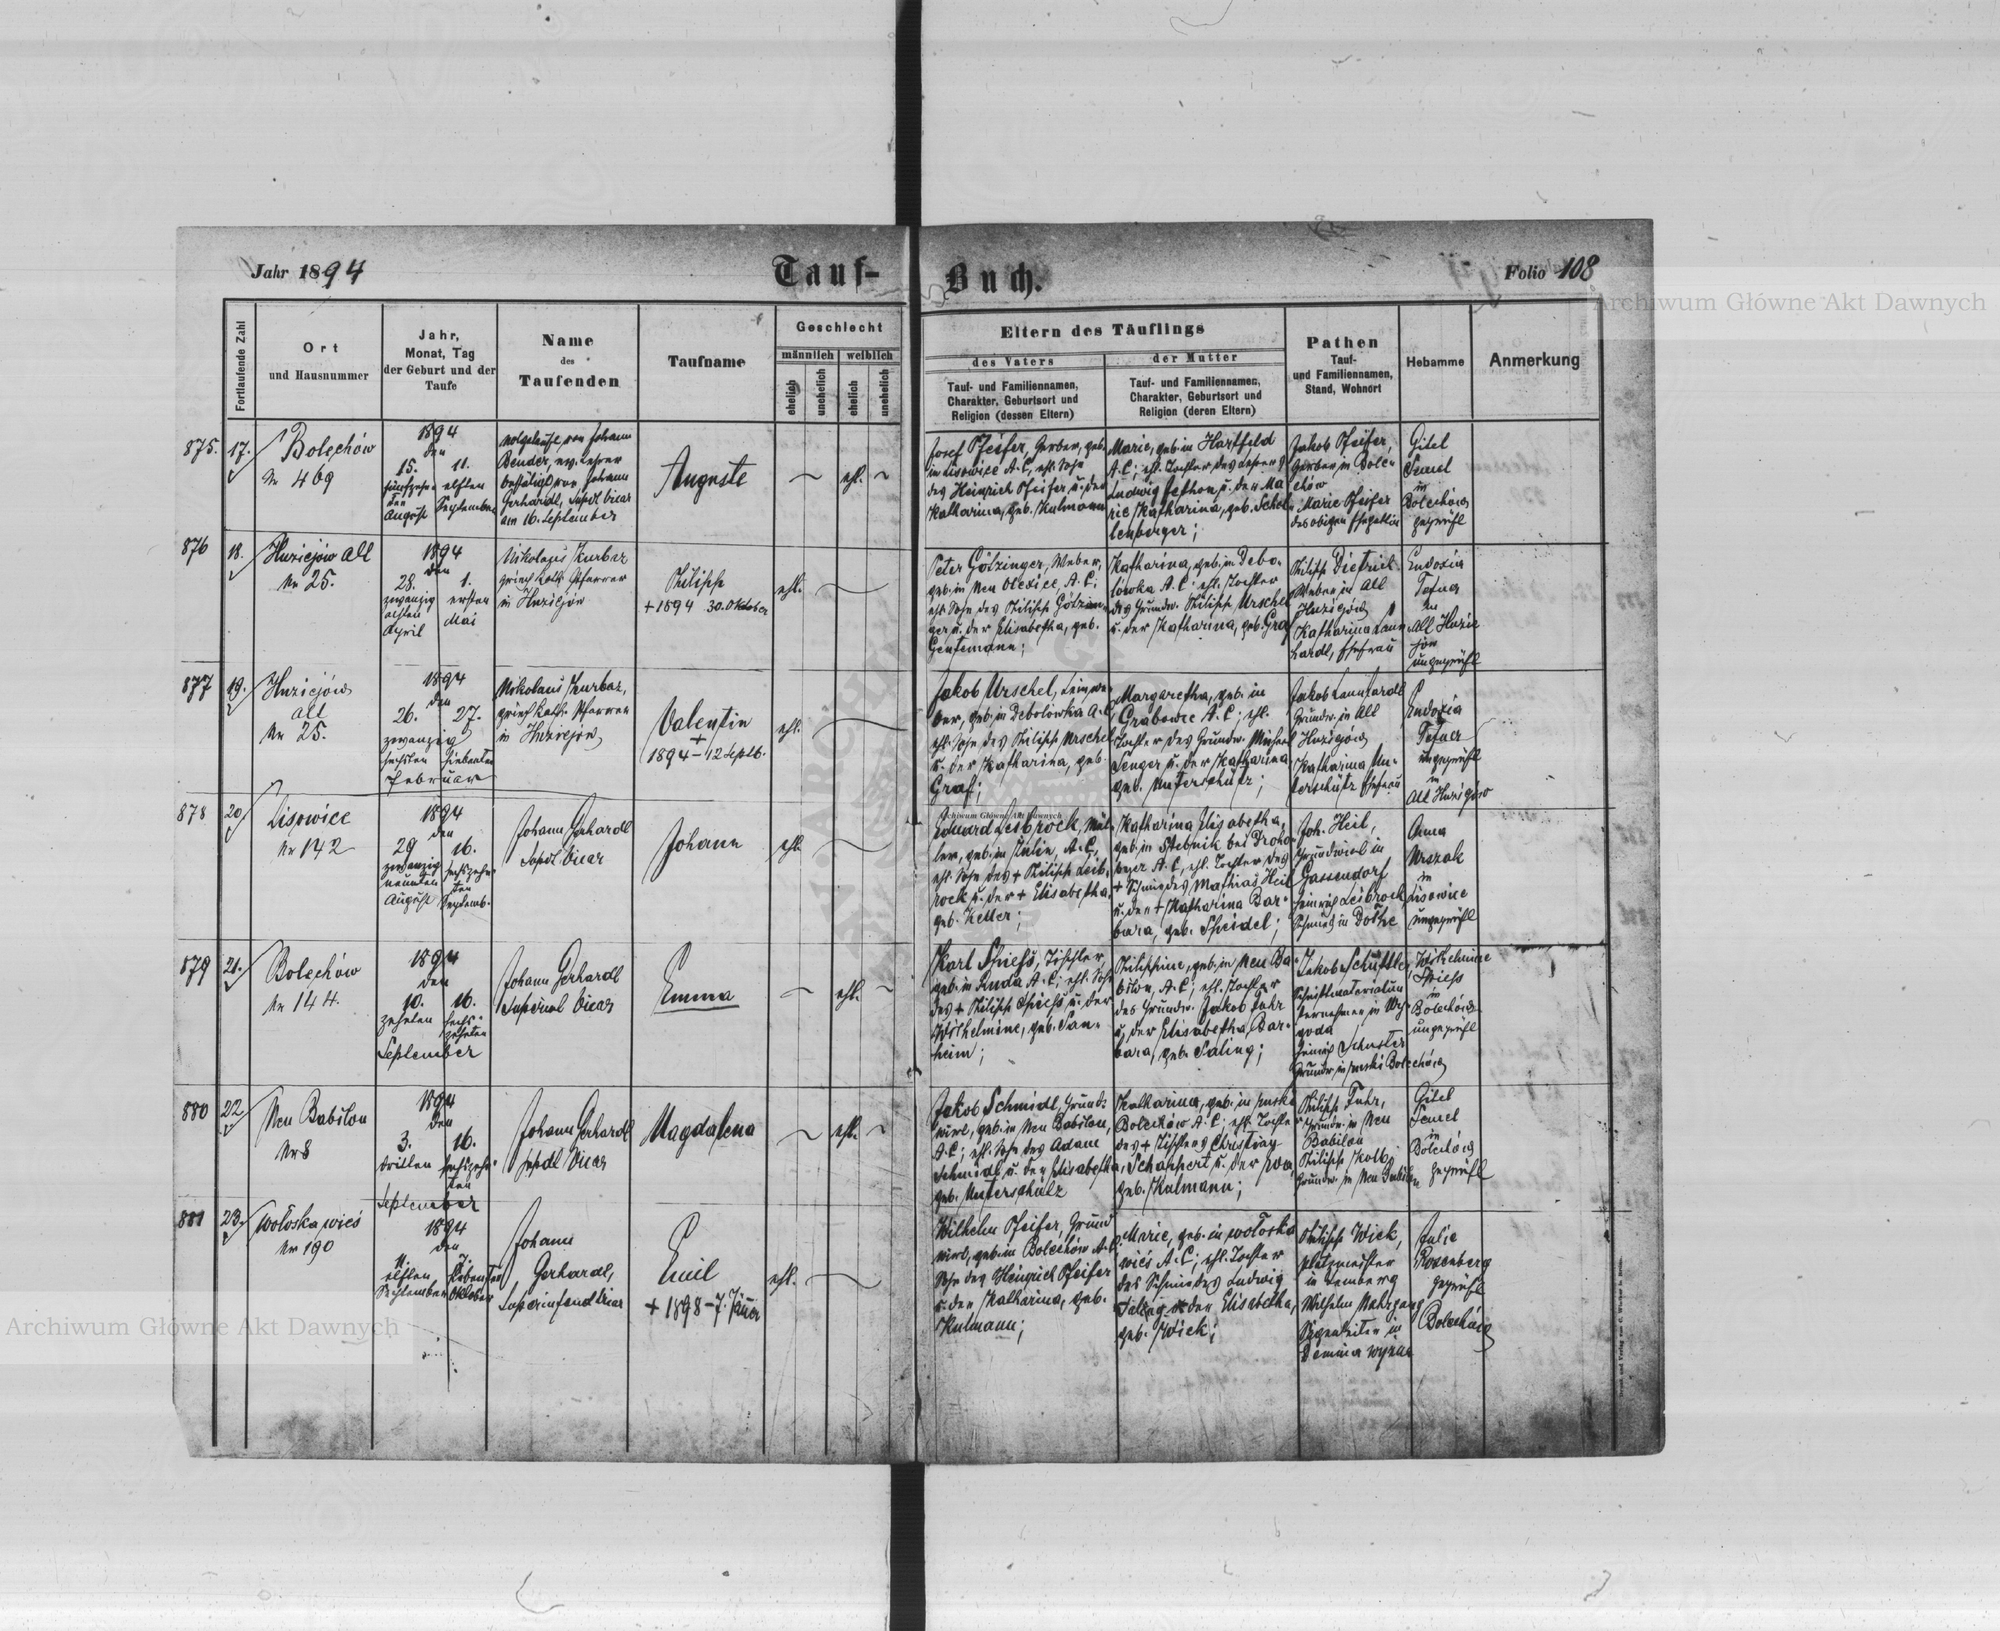 Jahr 1894
Tauf-
Buch.
Folio 108
Archiwum Główne Akt Dawnych
Fortlaufende Zahl
Ort
und Hausnummer
Jahr,
Monat, Tag
der Geburt und der
Taufe
Name
des
Taufenden
Taufname
Geschlecht
männlich
weiblich
ehelich
unehelich
ehelich
unehelich
Eltern des Täuflings
des Vaters
Tauf- und Familiennamen,
Charakter, Geburtsort und
Religion (dessen Eltern)
der Mutter
Tauf- und Familiennamen,
Charakter, Geburtsort und
Religion (deren Eltern)
Pathen
Tauf-
und Familiennamen,
Stand, Wohnort
Hebamme
Anmerkung
875.
17.
Bolechów
Nr 469
1894
den
15.
fünfzehn-
ten
August
11.
elften
September
notgetauft von Johann
Bender, ev. Lehrer
bestätigt von Johann
Gerhardt, Supdt Vicar
am 16. September
Auguste
ehl.
Josef Pfeifer, Gerber, geb.
in Lisowice A.C., ehl. Sohn
des Heinrich Pfeifer u. der
Katharina, geb. Kulmann
Marie, geb. in Hartfeld
A.C; ehl. Tochter des Lehrers
Ludwig u. der Ma
rie Katharina, geb. Schel
lenberger;
Jakob Pfeifer,
Gerber in Bole-
chów
Marie Pfeifer
des obigen Ehegattin
Gitel
Semel
in
Bolechów
geprüft
876
18.
Huziejów Alt
Nr 25.
1894
den
28.
zwanzig
achten
April
1.
ersten
Mai
Nikolaus Kurbas
griech. kath. Pfarrer
in Huziejów
Philipp
+ 1894 30. Oktober
ehl.
Peter Götzinger, Weber,
geb. in Neu Olexice, A.C;
ehl. Sohn des Philipp Götzin-
ger u. der Elisabetha, geb.
Gentemann;
Katharina, geb. in Debo-
lówka A.C; ehl. Tochter
des Grundw. Philipp Urschel
u. der Katharina, geb. Graf
Philipp Dietrich
Weber in Alt
Huziejów
Katharina Leon
hardt, Ehefrau
Eudoxia
Tofna
in
Alt Huzie
jów
ungeprüft
877
19.
Huziejów
Alt
Nr 25.
1894
den
26.
zwanzig
sechsten
27.
siebenten
Februar
Nikolaus Kurbas,
griech. kath. Pfarrer
in Huziejów
Valentin
+
1894 - 12 Septb.
ehl.
Jakob Urschel, Leinwe-
ber, geb. in Debolówka A.C,
ehl. Sohn des Philipp Urschel
u. der Katharina, geb.
Graf;
Margaretha, geb. in
Grabowce A.C; ehl.
Tochter des Grundw. Michael
Senger u. der Katharina
geb. Unterschütz;
Jakob Leonhardt
Grundw. in Alt
Huziejów
Katharina Un-
terschütz Ehefrau
Eudoxia
Tofna
ungeprüft
in
Alt Huziejów
878
20.
Lisowice
Nr 142
1894
den
29
zwanzig
neunten
August
16.
sechszehn-
ten
Septemb.
Johann Gerhardt
Supdt Vicar
Johann
ehl.
Archiwum Główne Akt Dawnych
Eduard Leibrock, Mül-
ler, geb. in Kulin, A.C,
ehl. Sohn des + Philipp Leib-
rock u. der + Elisabetha,
geb. Keller;
Katharina Elisabetha,
geb. in Stebnik bei Droho-
bycz A.C, ehl. Tochter des
+ Schmiedes Mathias Heil
u. der + Katharina Bar-
bara, geb. Speidel;
Joh. Heil,
Grundwirt in
Gassendorf
Heinrich Leibrock
Schmied in Dolhe
Anna
Urszak
in
Lisowice
ungeprüft
879
21.
Bolechów
Nr 144.
1894
den
10.
zehnten
16.
sechs-
zehnten
September
Johann Gerhardt
Superint Vicar
Emma
ehl.
Karl Spiess, Tischler,
geb. in Ruda A.C; ehl. Sohn
des + Philipp Spiess u. der
Wilhelmine, geb. San-
heim;
Philippine, geb. in Neu Ba-
bilon, A.C; ehl. Tochter
des Grundw. Jakob Fuhr
u. der Elisabetha Bar-
bara, geb. Saling;
Jakob Schüttler,
ternehmer in Wy-
goda
Heinrich Schuster
Grundw. in ruski Bolechów
Wilhelmine
Spiess
in
Bolechów
ungeprüft
880
22.
Neu Babilon
Nr 8
1894
den
3.
dritten
16.
sechszehn-
ten
September
Johann Gerhardt
Supdt Vicar
Magdalena
ehl.
Jakob Schmidt, Grund-
wirt, geb. in Neu Babilon,
A.C; ehl. Sohn des Adam
Schmidt u. der Elisabetha,
geb. Unterschütz
Katharina, geb. in ruski
Bolechów A.C; ehl. Tochter
des + Tischlers Christian
Schappert u. der Eva,
geb. Kulmann;
Philipp Fuhr,
Grundw. in Neu
Babilon
Philipp Kolb,
Grundw. in Neu Babilon
Gitel
Semel
in
Bolechów
geprüft
881
23.
Wołoska wieś
Nr 190
1894
den
11.
elften
September
7.
siebenten
Oktober
Johann
Gerhardt,
Superintend Vicar
Emil
+ 1898 - 7. Jäner
ehl.
Wilhelm Pfeifer, Grund
wirt, geb. in Bolechów A.C,
Sohn des Heinrich Pfeifer
u. der Katharina, geb.
Kulmann;
Marie, geb. in Wołoska
wieś A.C; ehl. Tochter
des Schmiedes Ludwig
Saling u. der Elisabetha,
geb. Wick;
Philipp Wick,
Platzmeister
in Lemberg
Wilhelm Mehrgang
in
Demnia wyżna
Julie
Rosenberg
geprüft
Bolechów
Archiwum Główne Akt Dawnych